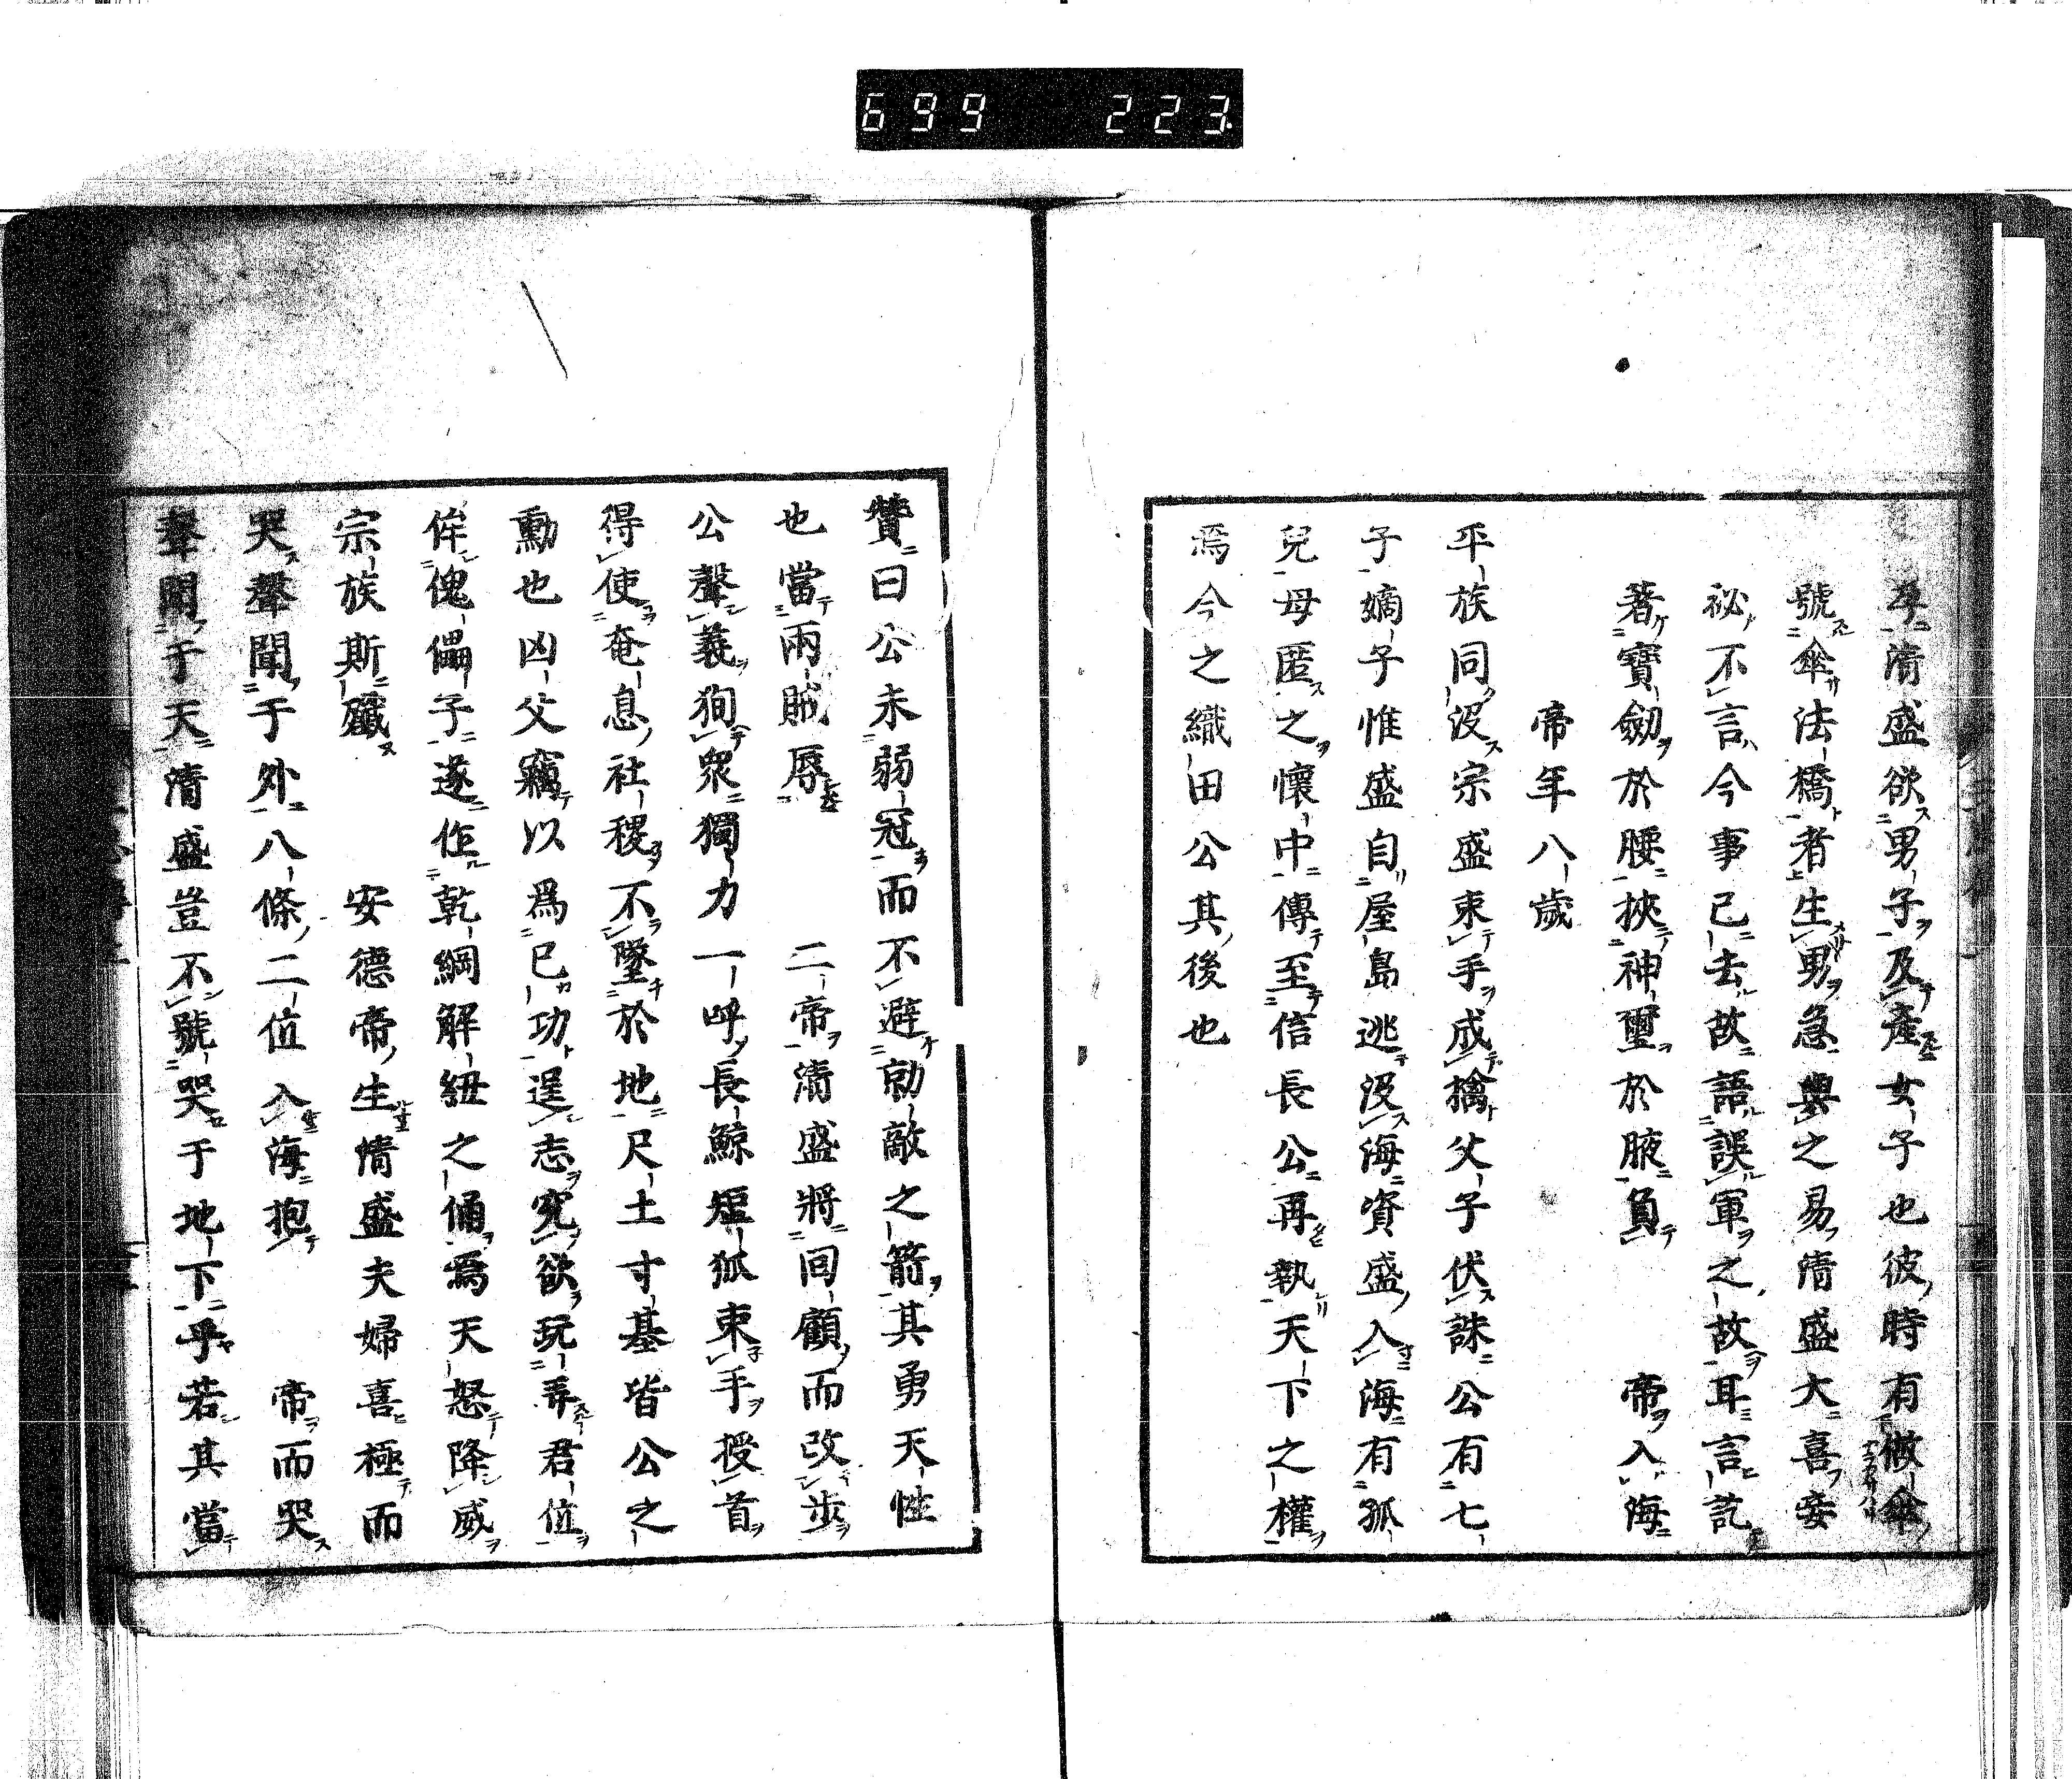 699 223
孕清盛欲男子及產女子也彼時有做傘
號傘法橋者生男急與之易清盛大喜妾
祕不言今事已去故語誤軍之故耳言訖
著寶劒於腰挾神璽於腋負 帝入海
帝年八歲
平族同沒宗盛束手成擒父子伏誅公有七
子嫡子惟盛自屋島逃沒海資盛入海有孤
兒母匿之懷中傳至信長公再執天下之權
焉今之織田公其後也
贊曰公未弱冠而不避勍敵之箭其勇天性
也當兩賊辱 二帝清盛將回顧而改步
公聲義狥衆獨力一呼長鯨短狐束手授首
得使奄息社稷不墜於地尺土寸基皆公之
勳也凶父竊以爲已功逞志究欲玩弄君位
侔傀儡子遂作乾綱解紐之俑焉天怒降威
宗族斯殲 安德帝生清盛夫婦喜極而
哭聲聞于外八條二位入海抱 帝而哭
聲聞于天清盛豈不號哭于地下乎若其當